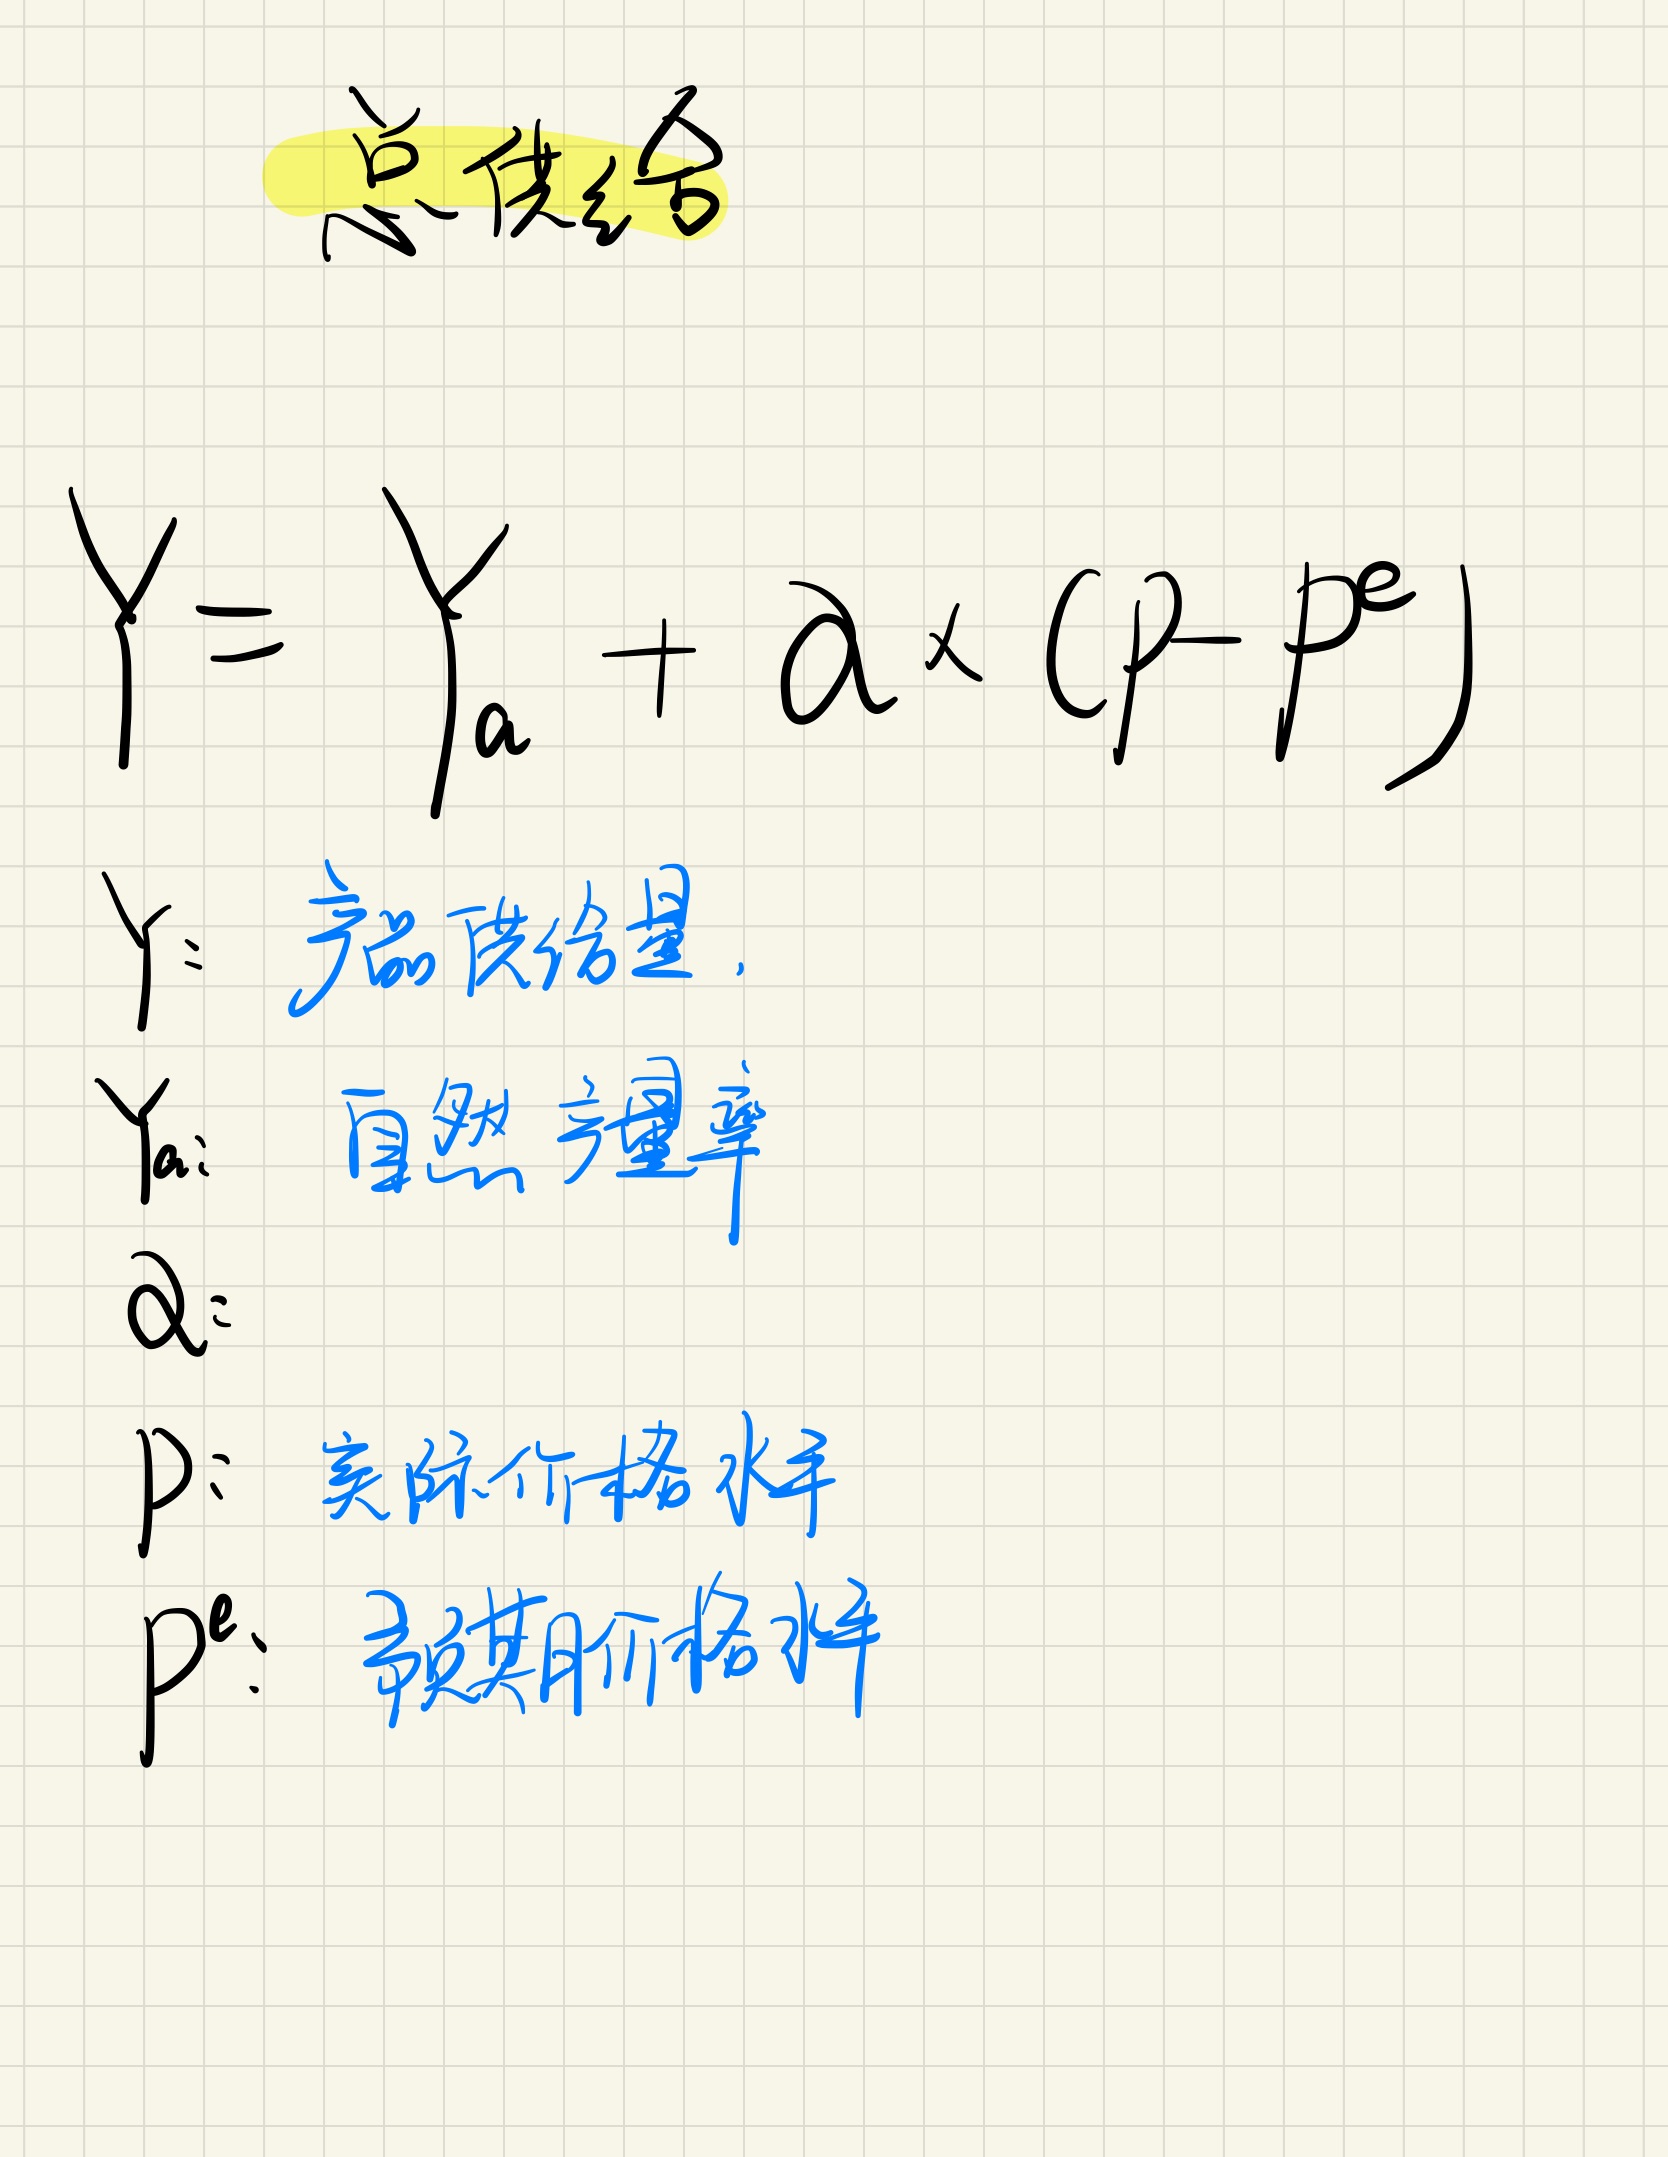 总供给
Y = Yₐ + a × (P - Pᵉ)
Y: 产品供给量.
Yₐ: 自然产量率
a:
P: 实际价格水平
Pᵉ: 预期价格水平